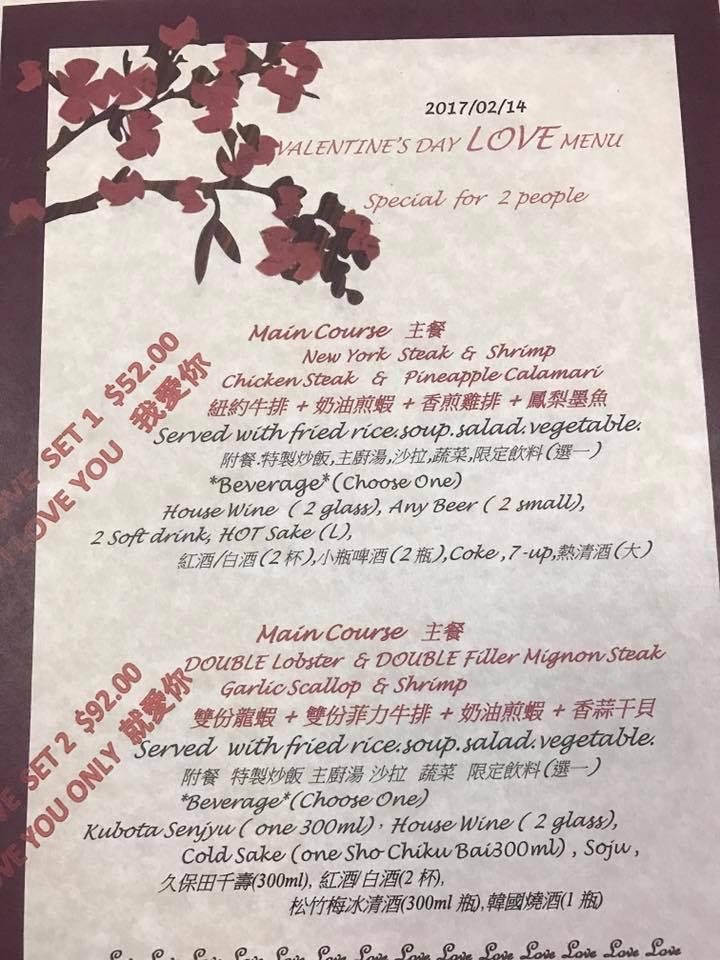 2017/02/14
VALENTINE'S DAY LOVE MENU
Special for 2 people
LOVE SET 1 $52.00
I LOVE YOU 我愛你
Main Course 主餐
New York Steak & Shrimp
Chicken Steak & Pineapple Calamari
紐約牛排 + 奶油煎蝦 + 香煎雞排 + 鳳梨墨魚
Served with fried rice.soup.salad.vegetable.
附餐.特製炒飯,主廚湯,沙拉,蔬菜,限定飲料(選一)
*Beverage*(Choose One)
House Wine ( 2 glass), Any Beer ( 2 small),
2 Soft drink, HOT Sake (L),
紅酒/白酒(2杯),小瓶啤酒(2瓶),Coke ,7-up,熱清酒(大)
SET 2 $92.00
LOVE YOU ONLY 就愛你
Main Course 主餐
DOUBLE Lobster & DOUBLE Filler Mignon Steak
Garlic Scallop & Shrimp
雙份龍蝦 + 雙份菲力牛排 + 奶油煎蝦 + 香蒜干貝
Served with fried rice.soup.salad.vegetable.
附餐 特製炒飯 主廚湯 沙拉 蔬菜 限定飲料(選一)
*Beverage*(Choose One)
Kubota Senjyu ( one 300ml)，House Wine ( 2 glass),
Cold Sake (one Sho Chiku Bai300ml) , Soju ,
久保田千壽(300ml), 紅酒/白酒(2杯),
松竹梅冰清酒(300ml 瓶),韓國燒酒(1 瓶)
Love Love Love Love Love Love Love Love Love Love Love Love Love Love